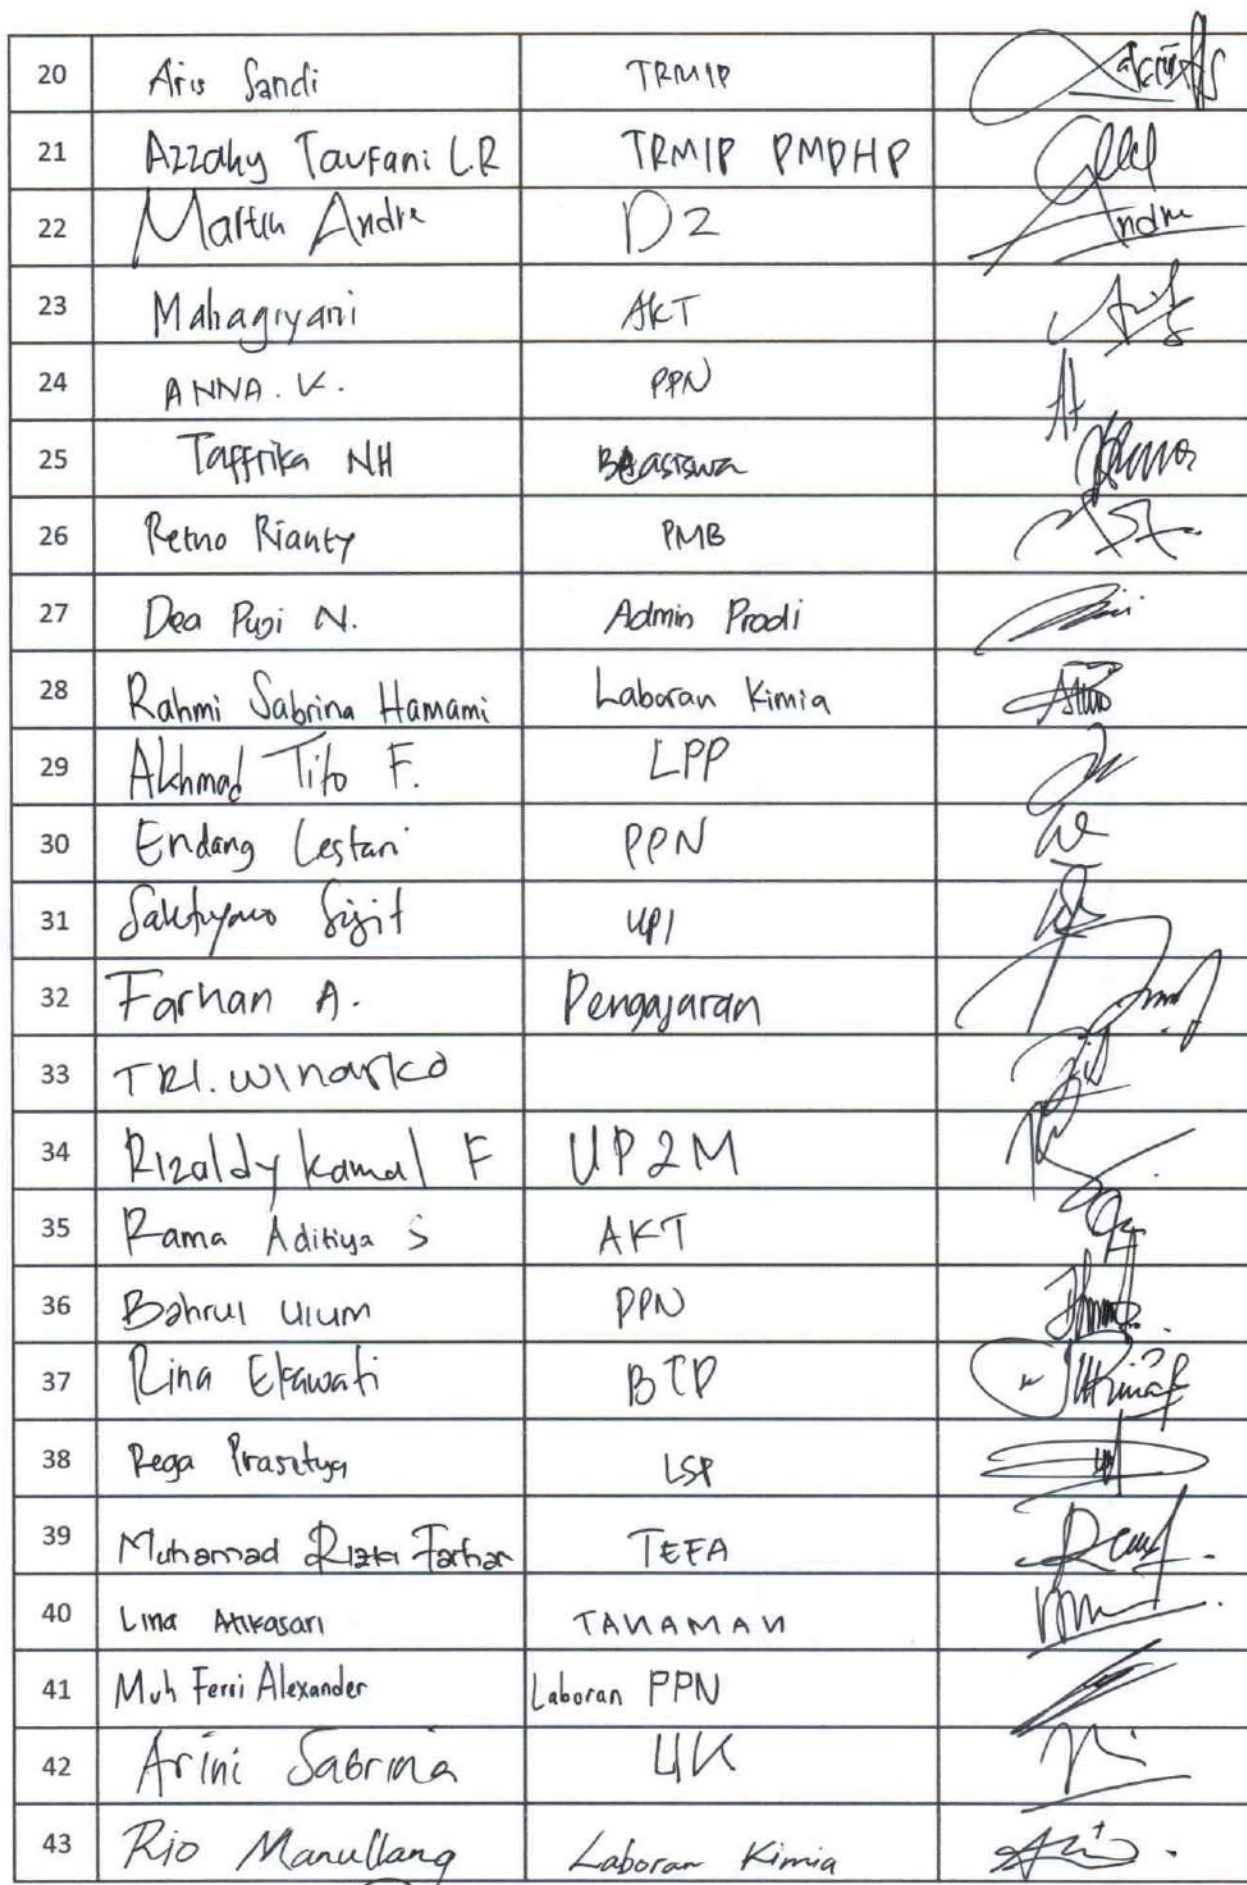 20 Aris Sandi TRMIP
21 Azzahy Taufani L.R TRMIP PMPHP
22 Martin Andre D2 Andre
23 Mahagiyani AKT
24 ANNA. K. PPN
25 Taffrika NH Beasiswa
26 Retno Rianty PMB
27 Dea Puji N. Admin Prodi
28 Rahmi Sabrina Hamami Laboran Kimia
29 Akhmad Tito F. LPP
30 Endang Lestari PPN
31 Saktiyono Sigit UPI
32 Farhan A. Pengajaran
33 TRI. WINARKO
34 Rizaldy Kamal F UP2M
35 Rama Aditiya S AKT
36 Bahrul Ulum PPN
37 Rina Ekawati BTP
38 Rega Prasetya LSP
39 Muhamad Rizki Farhan TEFA
40 Lina Atikasari TANAMAN
41 Muh Ferri Alexander Laboran PPN
42 Arini Sabrina UK
43 Rio Manullang Laboran Kimia